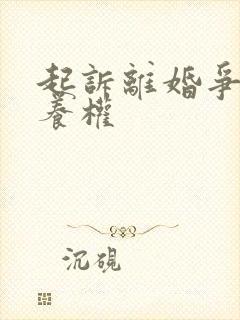 起訴離婚爭
養權
沉硯